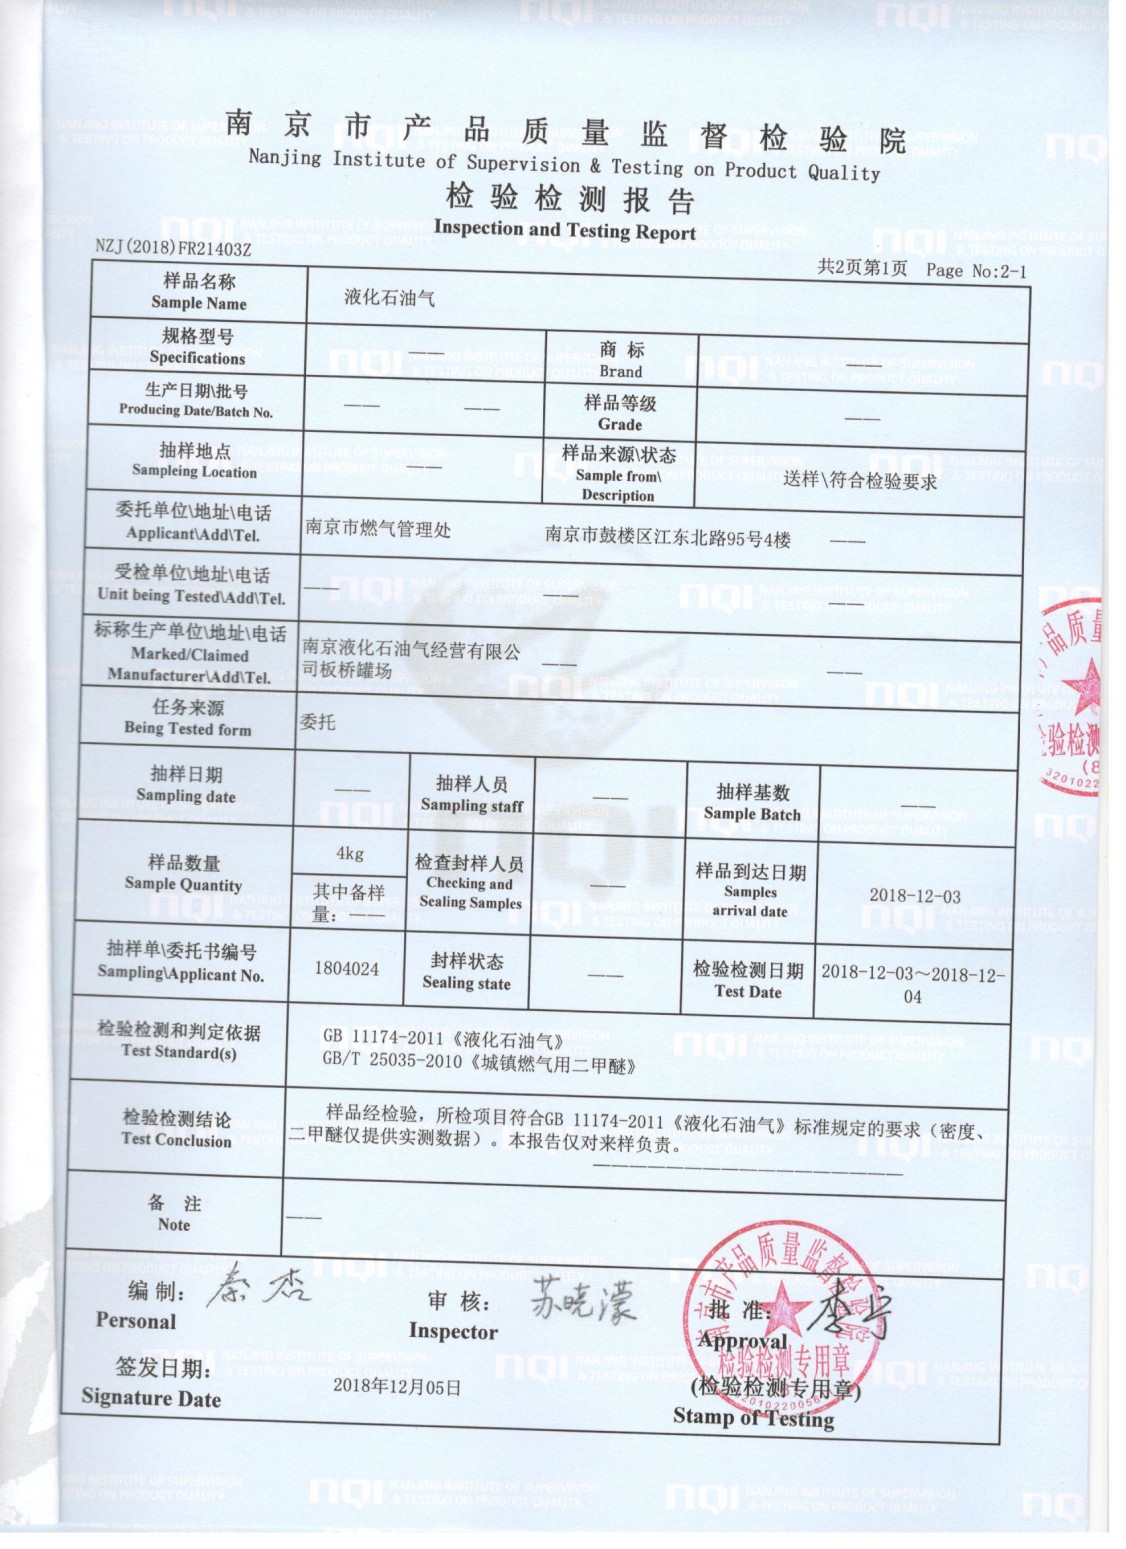 南京市产品质量监督检验院
Nanjing Institute of Supervision & Testing on Product Quality
检验检测报告
Inspection and Testing Report
NZJ(2018)FR21403Z
共2页第1页 Page No:2-1
样品名称
Sample Name
液化石油气
规格型号
Specifications
——
商 标
Brand
——
生产日期\批号
Producing Date/Batch No.
—— ——
样品等级
Grade
——
抽样地点
Sampleing Location
——
样品来源\状态
Sample from\
Description
送样\符合检验要求
委托单位\地址\电话
Applicant\Add\Tel.
南京市燃气管理处 南京市鼓楼区江东北路95号4楼 ——
受检单位\地址\电话
Unit being Tested\Add\Tel.
—— —— ——
标称生产单位\地址\电话
Marked/Claimed
Manufacturer\Add\Tel.
南京液化石油气经营有限公
司板桥罐场
—— ——
任务来源
Being Tested form
委托
抽样日期
Sampling date
——
抽样人员
Sampling staff
——
抽样基数
Sample Batch
——
样品数量
Sample Quantity
4kg
其中备样
量：——
检查封样人员
Checking and
Sealing Samples
——
样品到达日期
Samples
arrival date
2018-12-03
抽样单\委托书编号
Sampling\Applicant No.
1804024
封样状态
Sealing state
——
检验检测日期
Test Date
2018-12-03～2018-12-
04
检验检测和判定依据
Test Standard(s)
GB 11174-2011《液化石油气》
GB/T 25035-2010《城镇燃气用二甲醚》
检验检测结论
Test Conclusion
样品经检验，所检项目符合GB 11174-2011《液化石油气》标准规定的要求（密度、
二甲醚仅提供实测数据）。本报告仅对来样负责。
备 注
Note
——
编 制：秦杰
Personal
审 核：苏晓濛
Inspector
批 准：李宁
Approval
签发日期：
Signature Date
2018年12月05日
(检验检测专用章)
Stamp of Testing
南京市产品质量监督检验院
检验检测专用章
品质量
验检测
(8
3201022
nqi NANJING INSTITUTE OF SUPERVISION
& TESTING ON PRODUCT QUALITY